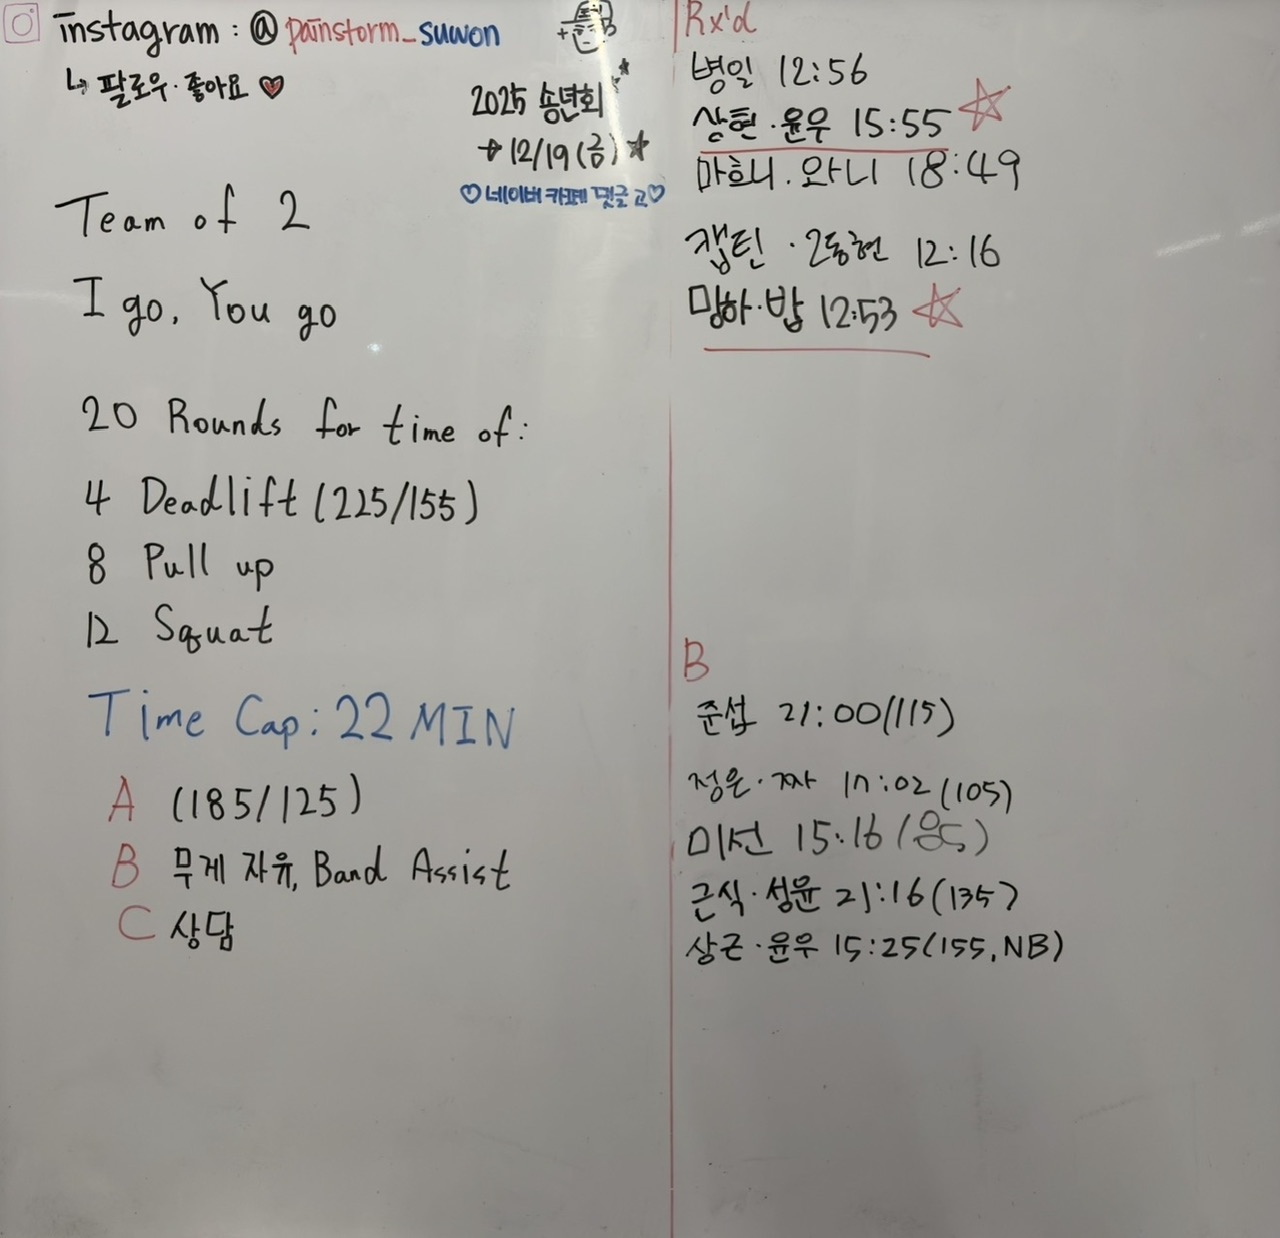 instagram : @ painstorm_suwon
↳ 팔로우·좋아요 ♥
2025 송년회
→ 12/19 (금) ★
♡네이버 카페 댓글 고♡
Team of 2
I go, You go
20 Rounds for time of:
4 Deadlift (225/155)
8 Pull up
12 Squat
Time Cap: 22 MIN
A (185/125)
B 무게 자유, Band Assist
C 상담
Rx'd
병일 12:56
상현·윤우 15:55 ☆
마흐니·와니 18:49
캡틴·2동현 12:16
밍하·밥 12:53 ☆
B
준섭 21:00(115)
정은·짜 17:02(105)
미선 15:16
근식·성윤 21:16(135)
상근·윤우 15:25(155, NB)